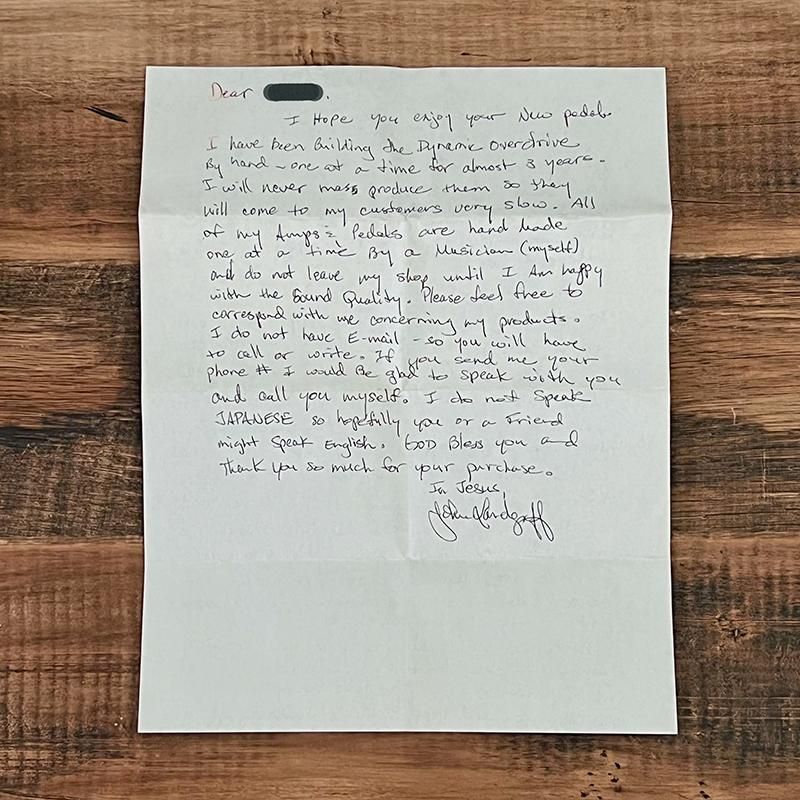 Dear
I Hope you enjoy your New pedal.
I have been Building the Dynamic Overdrive
By hand - one at a time for almost 3 years.
I will never mass produce them so they
will come to my customers very slow. All
of my Amps & Pedals are hand Made
one at a time By a Musician (myself)
and do not leave my shop until I Am happy
with the Sound Quality. Please feel free to
correspond with me concerning my products.
I do not have E-mail - so you will have
to call or write. If you send me your
phone # I would Be glad to speak with you
and call you myself. I do not Speak
JAPANESE so hopefully you or a Friend
might Speak English. GOD Bless you and
Thank you so much for your purchase.
In Jesus,
John Landgraff